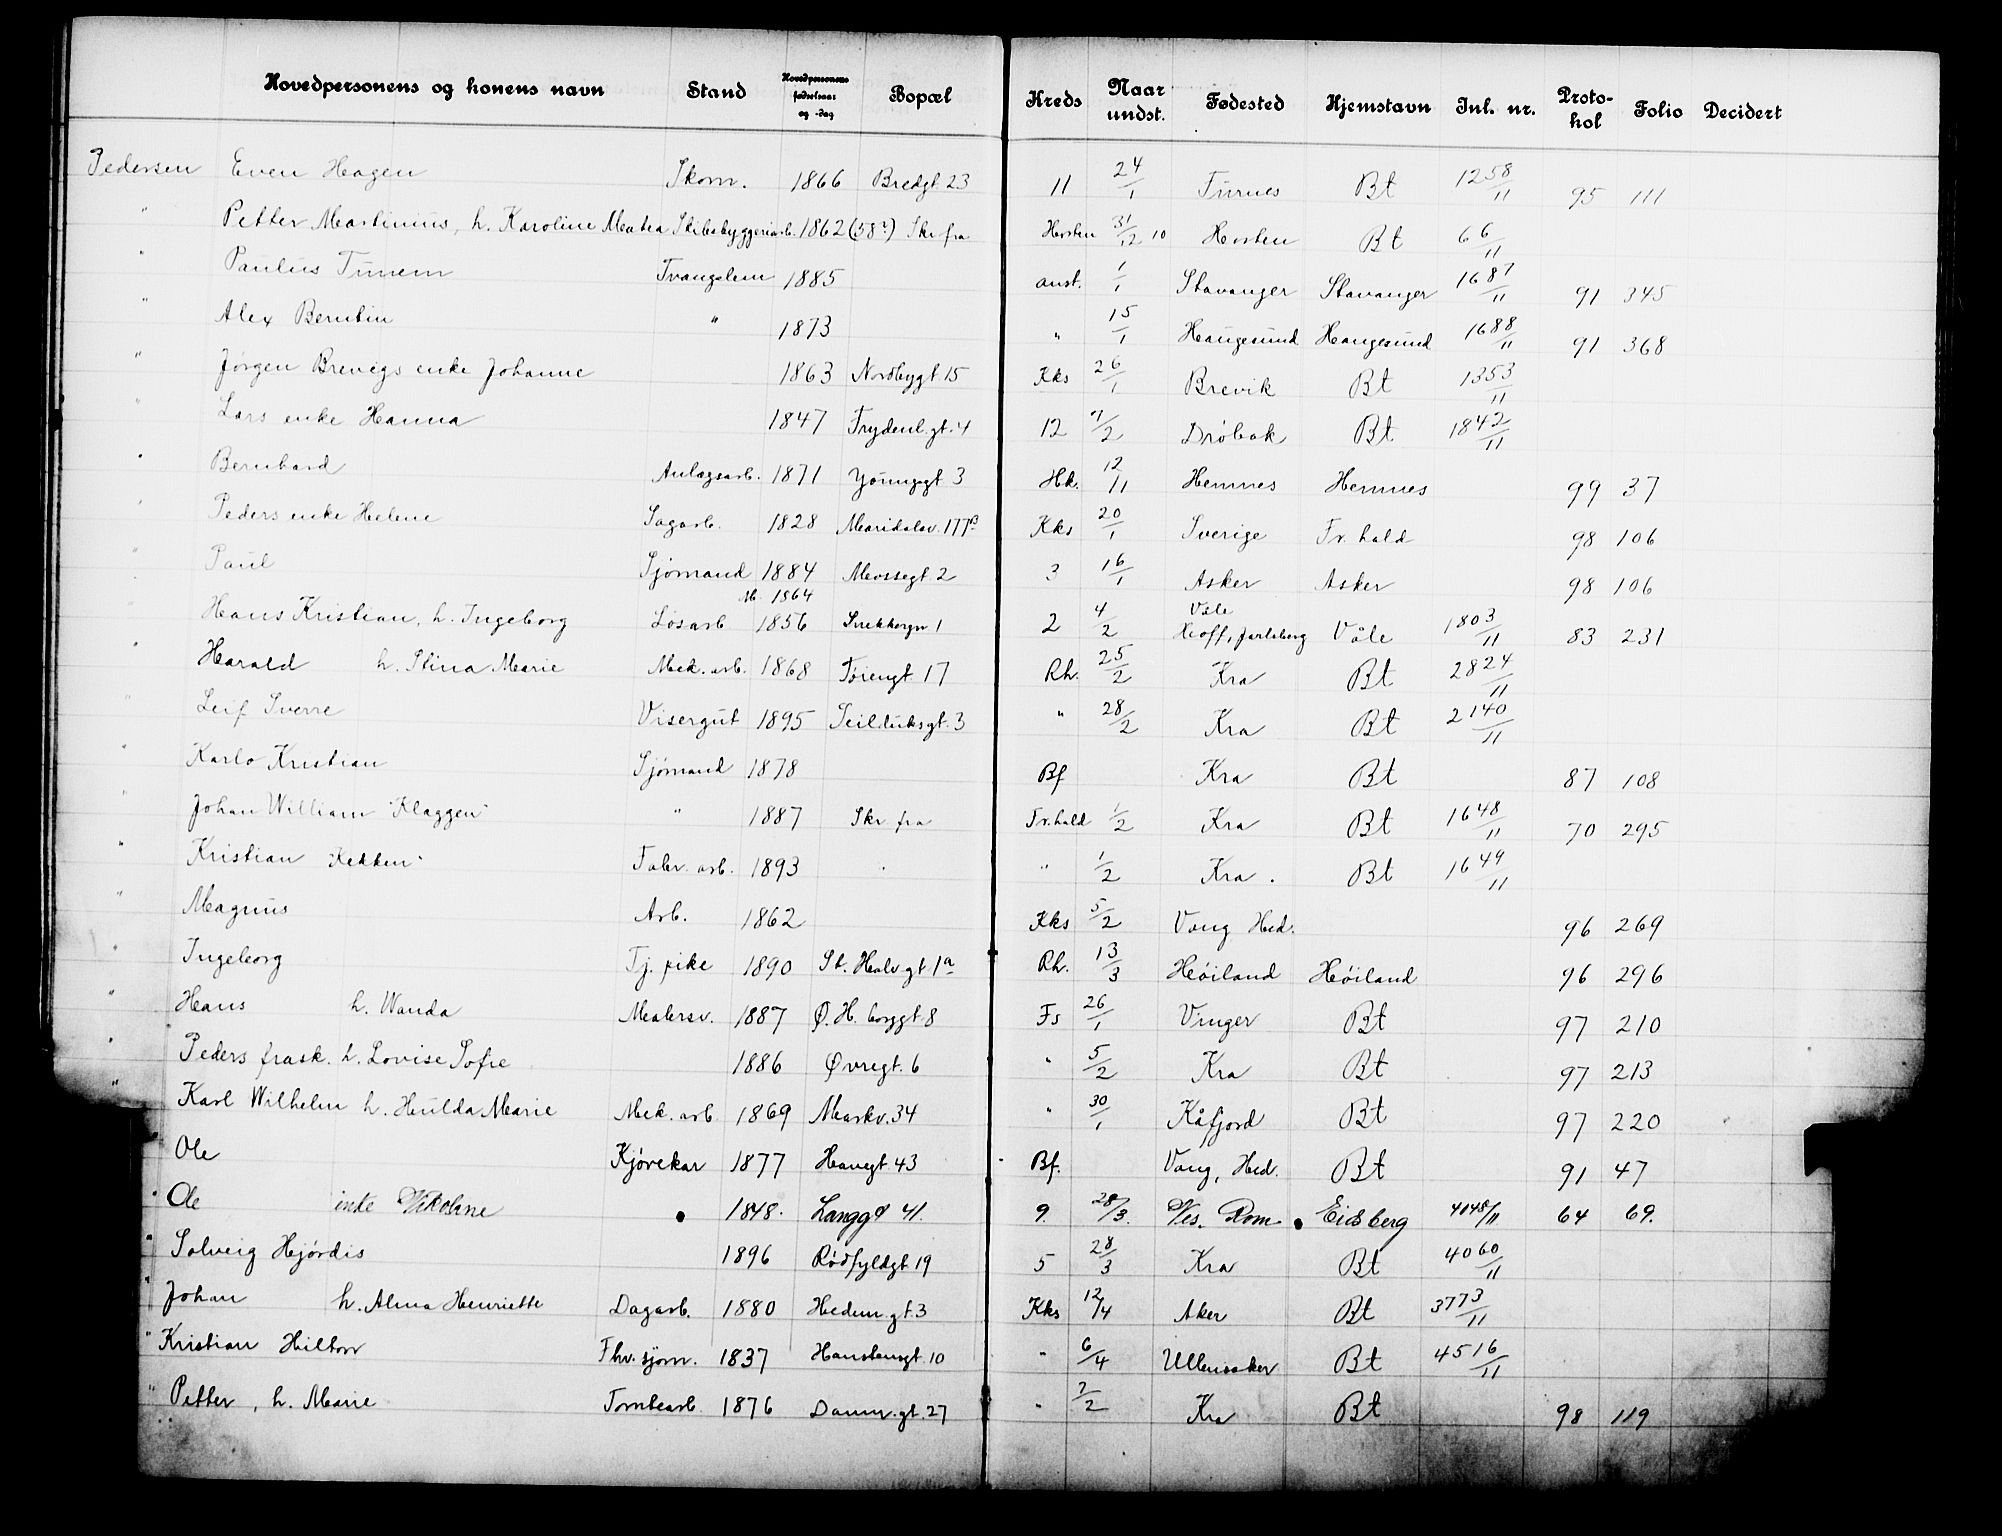 Hovedpersonens og konens navn Stand Hovedpersonens fødselsaar og -dag Bopæl Kreds Naar undst. Fødested Hjemstavn Jnl. nr. Protokol Folio Decidert
Pedersen Even Hagen Skom. 1866 Bredgt 23 11 24/1 Furnes Bt 1258/11 95 111
" Petter Martinius, h. Karoline Mathea Skibsbyggeriarb. 1862 (58?) Skr fra Horten 31/12 10 Horten Bt 66/11
" Paulus Tunem Tvangslem 1885 anst. 1/1 Stavanger Stavanger 1687/11 91 345
" Alex Berntin " 1873 " 15/1 Haugesund Haugesund 1688/11 91 368
" Jørgen Brevigs enke Johanne 1863 Nordbygt 15 Kks 26/1 Brevik Bt 1353/11
" Lars enke Hanna 1847 Frydenl.gt. 4 12 7/2 Drøbak Bt 1842/11
" Bernhard Anlægsarb. 1871 Youngsgt 3 Hk. 12/11 Hemnes Hemnes 99 37
" Peders enke Helene Sagarb. 1828 Maridalsv. 177B Kks 20/1 Sverige Fr. hald 98 106
" Paul Sjømand 1884 Mossegt 2 3 16/1 Asker Asker 98 106
M. 1864 Våle
" Hans Kristian, h. Ingeborg Løsarb 1856 Snekkergn 1 2 4/2 Hoff, Jarlsberg Våle 1803/11 83 231
" Harald h. Stina Marie Mek. arb. 1868 Tøiengt 17 Rh. 25/2 Kra Bt 2824/11
" Leif Sverre Visergut 1895 Seilduksgt. 3 " 28/2 Kra Bt 2140/11
" Karlo Kristian Sjømand 1878 Bf Kra Bt 87 108
" Johan William "Klaggen" " 1887 Skr fra Fr.hald 1/2 Kra Bt 1648/11 70 295
" Kristian "Kekken" Fabr. arb. 1893 " " 1/2 Kra. Bt 1649/11
" Magnus Arb. 1862 Kks 5/2 Vang Hed. 96 269
" Ingeborg Tj. pike 1890 St. Halv.gt 1a Rh. 13/3 Høiland Høiland 96 296
" Hans h. Wanda Malersv. 1887 Ø. H. borggt 8 Fs 26/1 Vinger Bt 97 210
" Peders frask. h. Lovise Sofie 1886 Øvregt. 6 " 5/2 Kra Bt 97 213
" Karl Wilhelm h. Hulda Marie Mek. arb. 1869 Markv. 34 " 30/1 Kåfjord Bt 97 220
Ole Kjørekar 1877 Havegt 43 Bf. Vang, Hed. Bt 91 47
" Ole enke Nikoline 1848. Langgt 41. 9. 28/3. Nes. Rom. Eidsberg 4048/11 64 69.
" Solveig Hjørdis 1896 Rødfyldgt 19 5 28/3 Kra Bt 4060/11
" Johan h. Alma Henriette Dagarb. 1880 Hedem gt. 3 Kks 12/4 Aker Bt 3773/11
" Kristian Hilton Fhv. sjøm. 1837 Hanstensgt. 10 " 6/4 Ullensaker Bt 4516/11
" Petter, h. Marie Tomtearb. 1876 Danm.gt. 27 " 7/2 Kra Bt 98 119